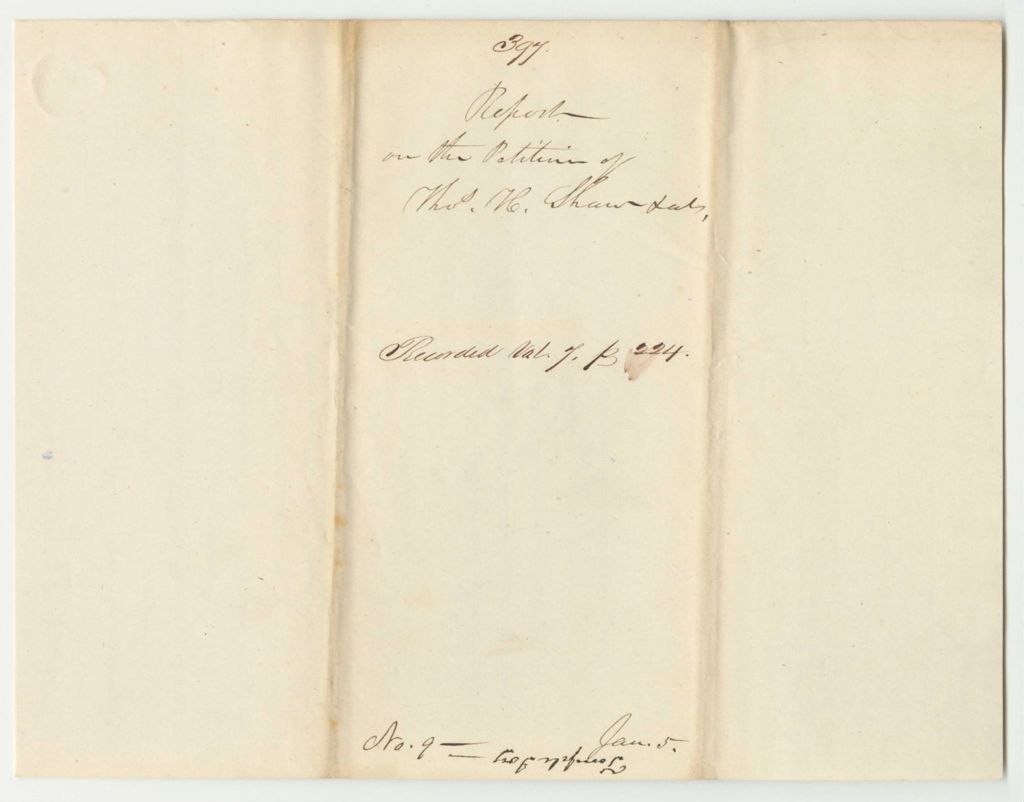 397.
Report
on the Petition of
Thos. H. Shaw & als,
Recorded Vol. 7. p 224.
No. 9 — Jan. 5.